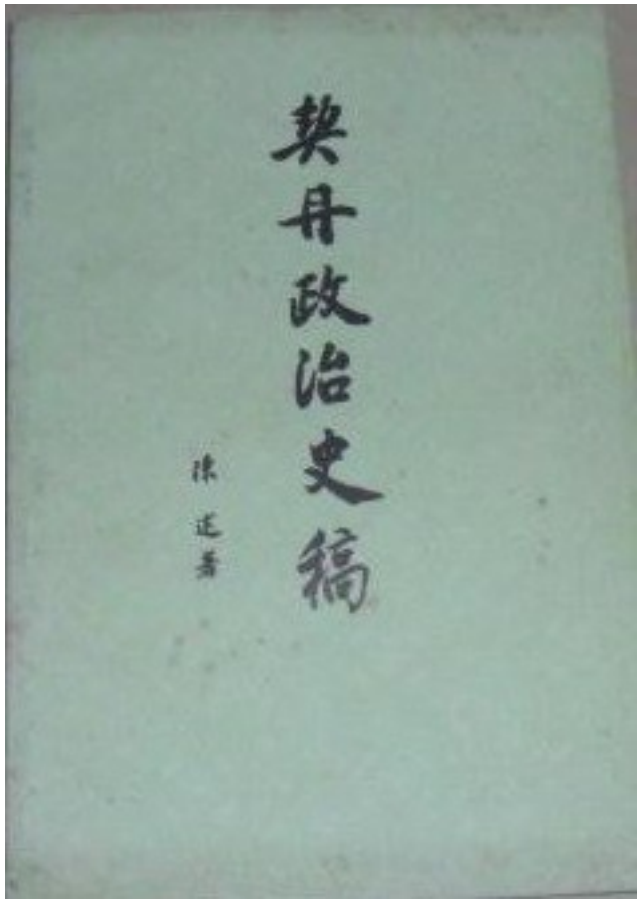 契丹政治史稿
陈述著